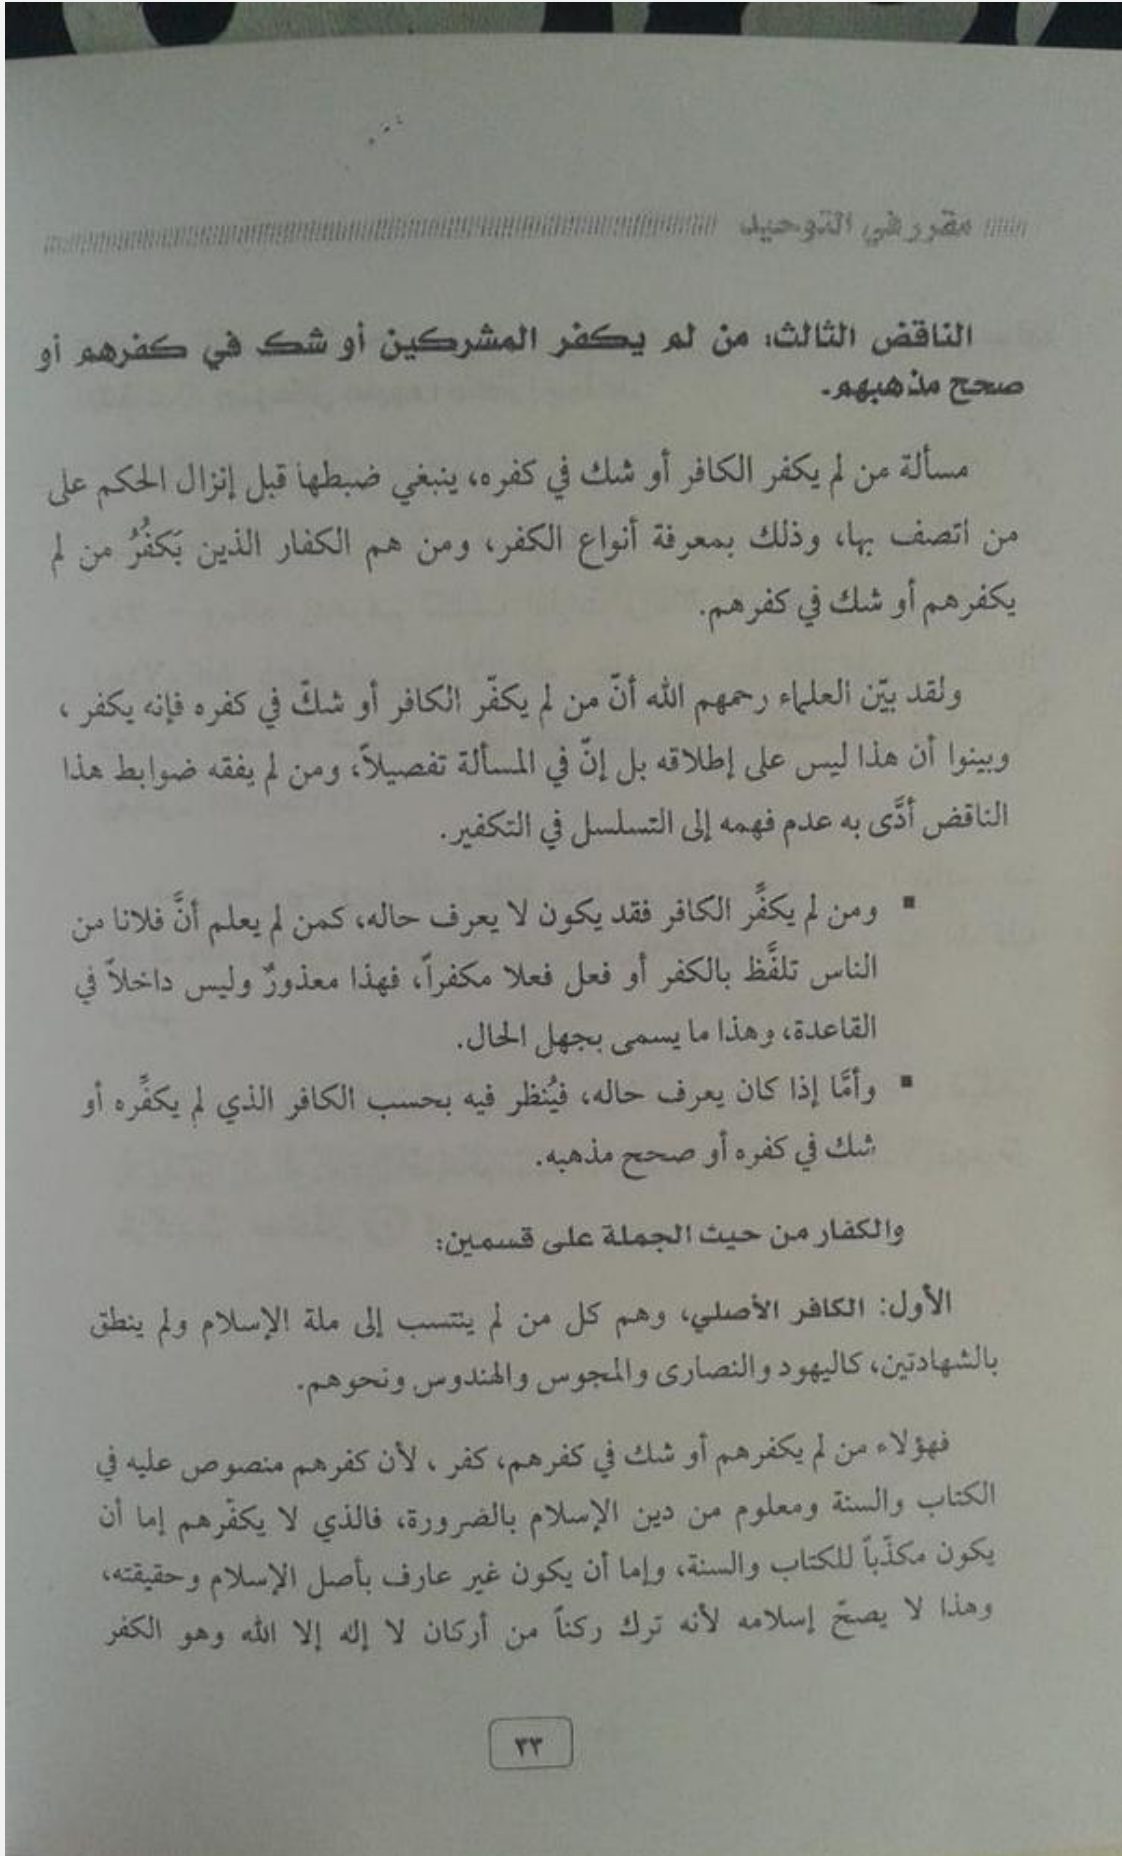 مقرر في التوحيد
الناقض الثالث: من لم يكفر المشركين أو شك في كفرهم أو
صحح مذهبهم.
مسألة من لم يكفر الكافر أو شك في كفره، ينبغي ضبطها قبل إنزال الحكم على
من اتصف بها، وذلك بمعرفة أنواع الكفر، ومن هم الكفار الذين يَكفُرُ من لم
يكفرهم أو شك في كفرهم.
ولقد بيّن العلماء رحمهم الله أنّ من لم يكفّر الكافر أو شكّ في كفره فإنه يكفر ،
وبينوا أن هذا ليس على إطلاقه بل إنّ في المسألة تفصيلاً، ومن لم يفقه ضوابط هذا
الناقض أدَّى به عدم فهمه إلى التسلسل في التكفير.
▪ ومن لم يكفِّر الكافر فقد يكون لا يعرف حاله، كمن لم يعلم أنَّ فلانا من
الناس تلفَّظ بالكفر أو فعل فعلا مكفراً، فهذا معذورٌ وليس داخلاً في
القاعدة، وهذا ما يسمى بجهل الحال.
▪ وأمَّا إذا كان يعرف حاله، فيُنظر فيه بحسب الكافر الذي لم يكفِّره أو
شك في كفره أو صحح مذهبه.
والكفار من حيث الجملة على قسمين:
الأول: الكافر الأصلي، وهم كل من لم ينتسب إلى ملة الإسلام ولم ينطق
بالشهادتين، كاليهود والنصارى والمجوس والهندوس ونحوهم.
فهؤلاء من لم يكفرهم أو شك في كفرهم، كفر ، لأن كفرهم منصوص عليه في
الكتاب والسنة ومعلوم من دين الإسلام بالضرورة، فالذي لا يكفّرهم إما أن
يكون مكذّباً للكتاب والسنة، وإما أن يكون غير عارف بأصل الإسلام وحقيقته،
وهذا لا يصحّ إسلامه لأنه ترك ركناً من أركان لا إله إلا الله وهو الكفر
٣٣